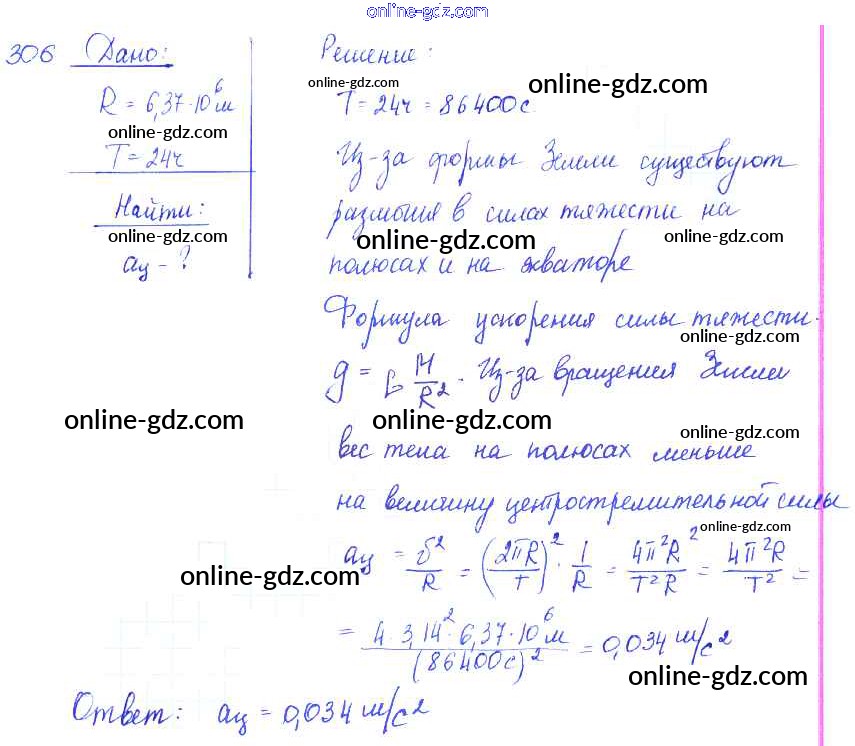 online-gdz.com
306 Дано:
R = 6,37·10⁶м
online-gdz.com
T = 24ч
Найти:
online-gdz.com
aц - ?
Решение:
online-gdz.com
online-gdz.com
T = 24ч = 86400с
Из-за формы Земли существуют
online-gdz.com
различия в силах тяжести на
online-gdz.com
online-gdz.com
полюсах и на экваторе
Формула ускорения силы тяжести.
online-gdz.com
g = G M/R². Из-за вращения Земли
online-gdz.com
online-gdz.com
online-gdz.com
вес тела на полюсах меньше
на величину центростремительной силы
online-gdz.com
aц = υ²/R = (2πR/T)² · 1/R = 4π²R²/T²R = 4π²R/T² =
online-gdz.com
online-gdz.com
= 4·3,14²·6,37·10⁶м/(86400с)² = 0,034 м/с²
online-gdz.com
Ответ: aц = 0,034 м/с²
online-gdz.com